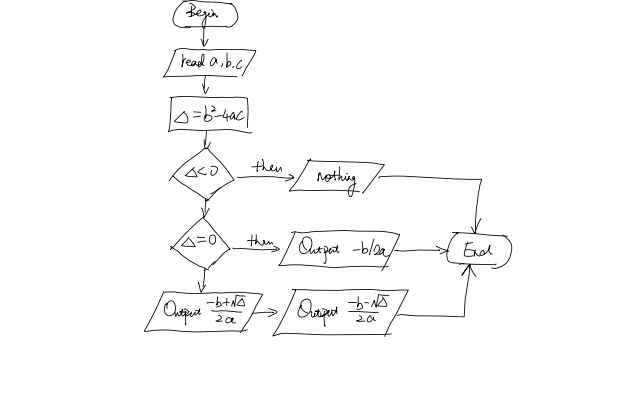 Begin
read a,b,c
Δ=b²-4ac
Δ<0
then
nothing
Δ=0
then
Output -b/2a
End
Output (-b+√Δ)/2a
Output (-b-√Δ)/2a